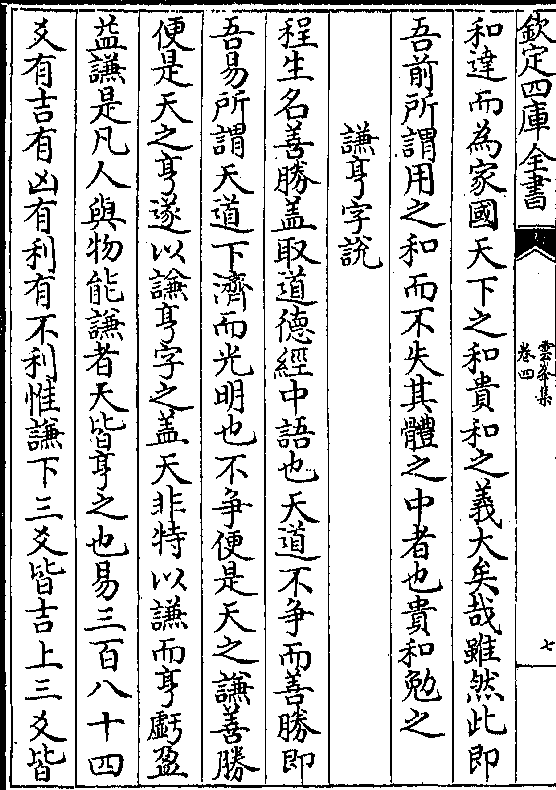 欽定四庫全書
雲峯集
卷四
七
和達而為家國天下之和貴和之義大矣哉雖然此即
吾前所謂用之和而不失其體之中者也貴和勉之
謙亨字說
程生名善勝盖取道德經中語也天道不争而善勝即
吾易所謂天道下濟而光明也不争便是天之謙善勝
便是天之亨遂以謙亨字之盖天非特以謙而亨虧盈
益謙是凡人與物能謙者天皆亨之也易三百八十四
爻有吉有凶有利有不利惟謙下三爻皆吉上三爻皆